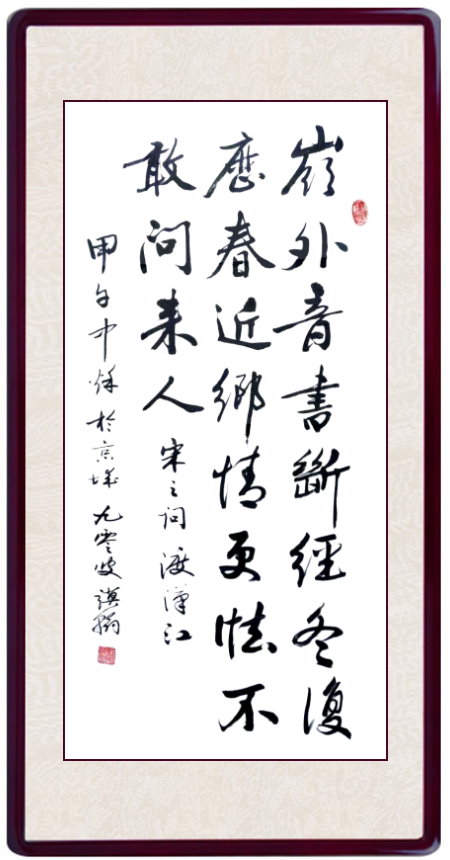 嶺外音書斷經冬復
歷春近鄉情更怯不
敢問来人 宋之問渡漢江
甲午中秋於京城九零叟